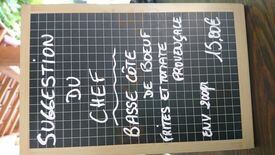 SUGGESTION
DU
CHEF
BASSE CÔTE
DE BOEUF
FRITES ET TOMATE
PROVENÇALE
ENV 200gr 15,80€